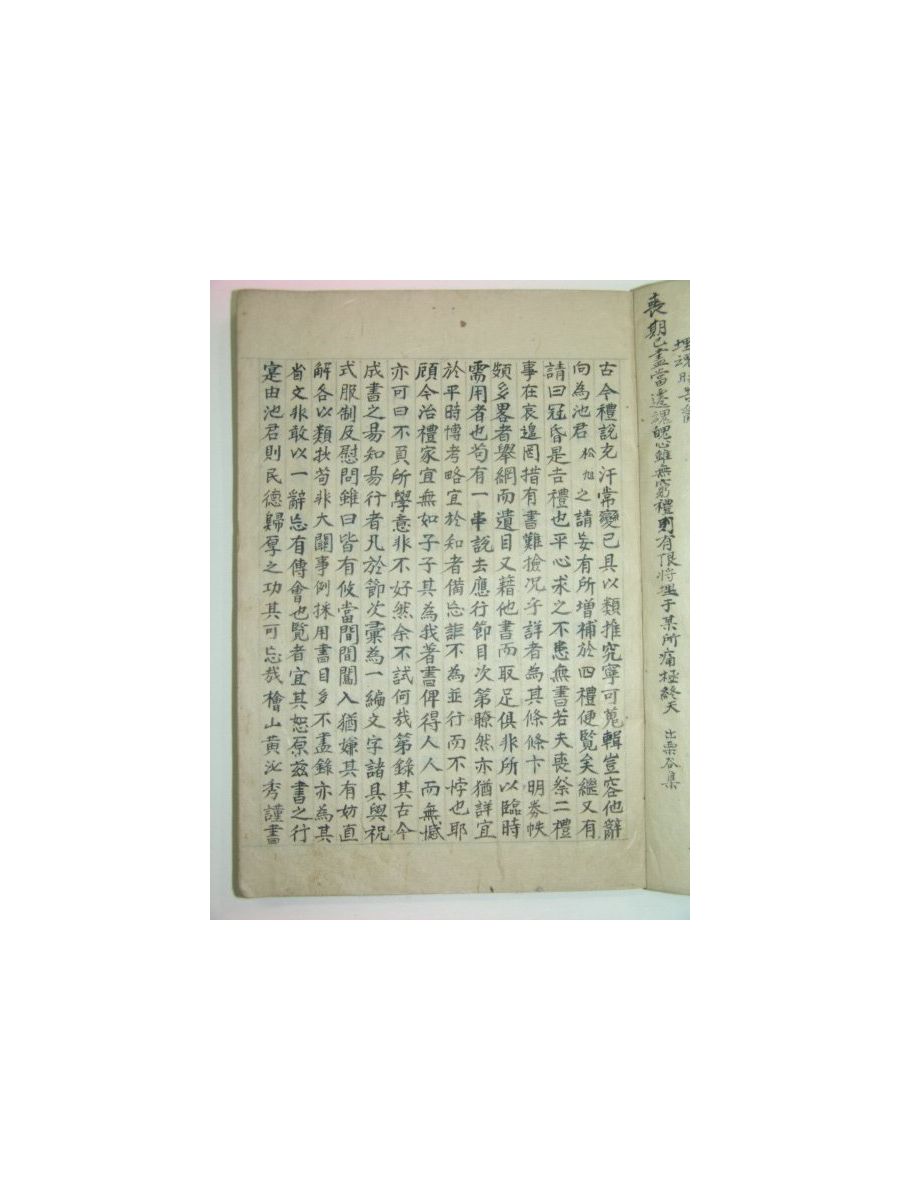 喪期已盡當返魂魄心雖無窮禮則有限將埋于某所痛極終天 出栗谷集
古今禮說充汗常變已具以類推究寧可蒐輯豈容他辭
向為池君松旭之請妄有所增補於四禮便覽矣繼又有
請曰冠昏是吉禮也平心求之不患無書若夫喪祭二禮
事在哀遑罔措有書難撿况乎詳者為其條條卞明券帙
頗多畧者舉綱而遺目又藉他書而取足俱非所以臨時
需用者也苟有一串說去應行節目次第瞭然亦猶詳宜
於平時博考略宜於知者備忘詎不為並行而不悖也耶
顧今治禮家宜無如子子其為我著書俾得人人而無憾
亦可曰不負所學意非不好然余不試何哉第錄其古今
成書之易知易行者凡於節次彙為一編文字諸具與祝
式服制及慰問雖曰皆有攸當間間闖入猶嫌其有妨直
解各以類抄苟非大關事例採用書目多不盡錄亦為其
省文非敢以一辭忘有傳會也覽者宜其恕原玆書之行
寔由池君則民德歸厚之功其可忘哉檜山黃泌秀謹書